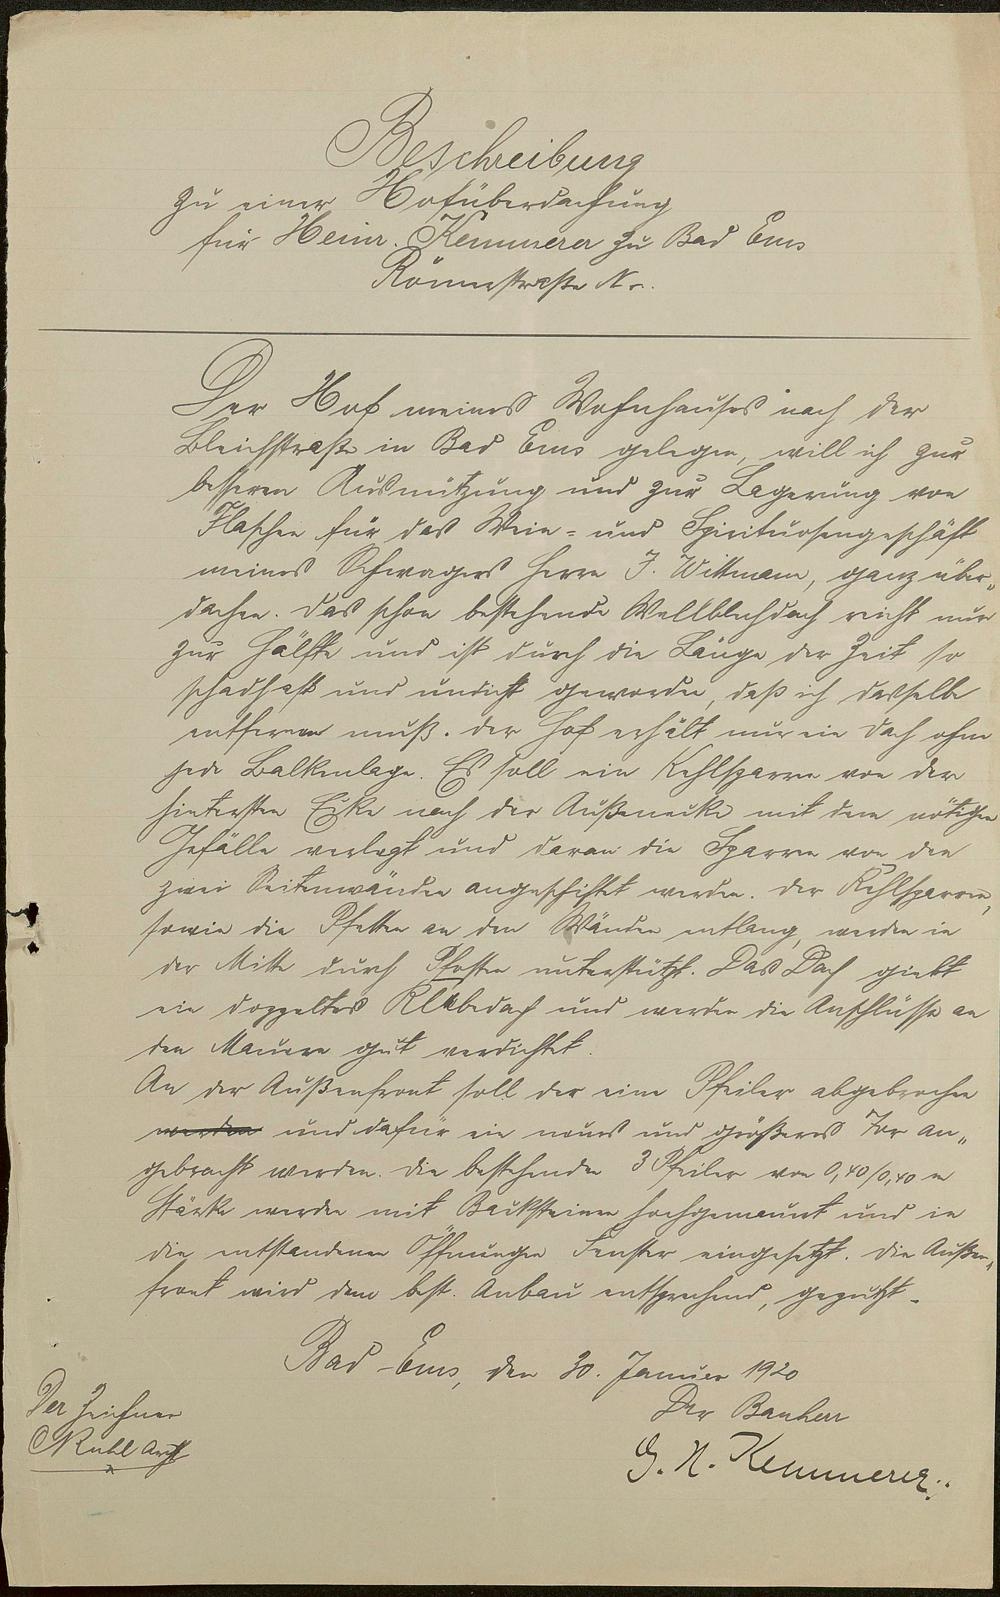 Beschreibung
zu einer Hofüberdachung
für Heinr. Kemmerer zu Bad Ems
Römerstraße Nr.
Der Hof meines Wohnhauses nach der
Bleichstraße in Bad Ems gelegen, will ich zur
besseren Ausnützung und zur Lagerung von
Flaschen für das Wein- und Spirituosengeschäft
meines Schwagers Herrn J. Wittmann, ganz über„
dachen. Das schon bestehende Wellblechdach reicht nur
zur Hälfte und ist durch die Länge der Zeit so
schadhaft und undicht geworden, daß ich dasselbe
entfernen muß. Der Hof erhält nur ein Dach ohne
jede Balkenlage. Es soll ein Kehlsparren von der
hintersten Ecke nach der Außenecke mit dem nötigen
Gefälle verlegt und daran die Sparren von den
zwei Seitenwänden angeschiftet werden. Der Kehlsparren,
sowie die Pfetten an den Wänden entlang, werden in
der Mitte durch Pfosten unterstützt. Das Dach giebt
ein doppeltes Klebedach und werden die Anschlüsse an
den Mauern gut verdichtet.
An der Außenfront soll der eine Pfeiler abgebrochen
werden und dafür ein neues und größeres Tor an„
gebracht werden. Die bestehenden 3 Pfeiler von 0,40/0,40 m
Stärke werden mit Backsteinen hochgemauert und in
die entstandenen Öffnungen Fenster eingesetzt. Die Außen„
front wird dem best. Anbau entsprechend, geputzt.
Bad-Ems, den 30. Januar 1920
Der Zeichner
Der Bauherr
Ruhl Archt
G. H. Kemmerer.